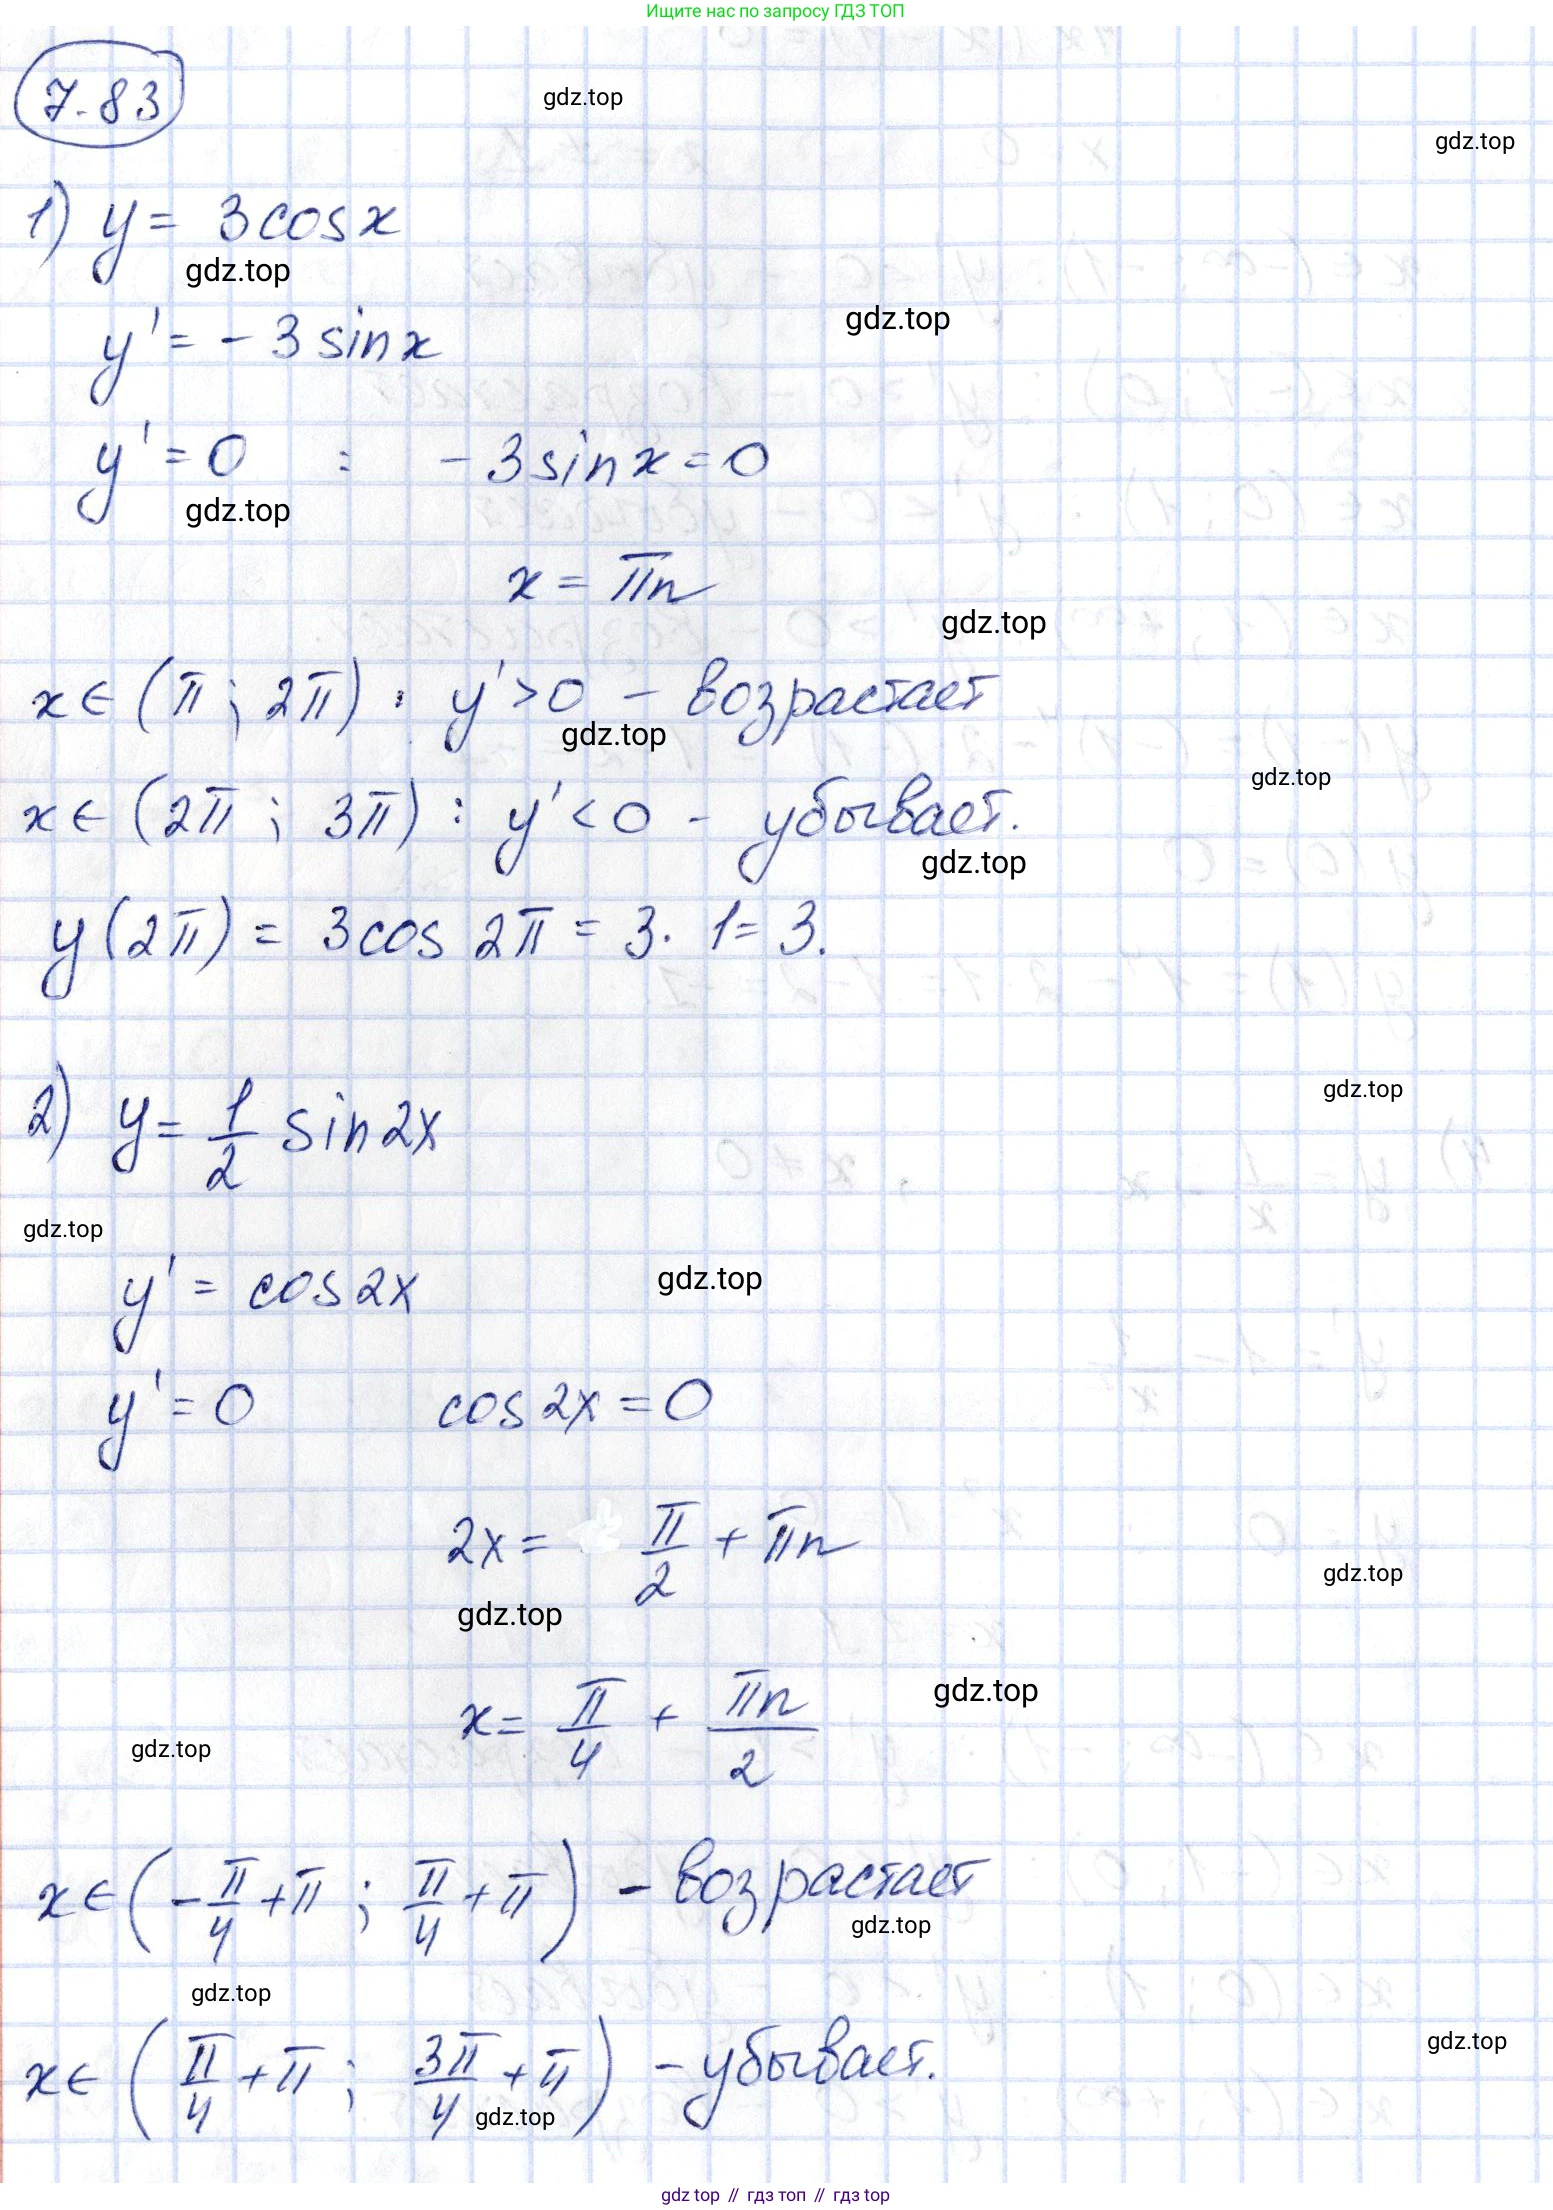 Ищите нас по запросу ГДЗ ТОП
7.83
gdz.top
gdz.top
1) y = 3cosx
gdz.top
gdz.top
y' = - 3 sinx
y' = 0 : - 3sinx = 0
gdz.top
x = πn
gdz.top
x ∈ (π ; 2π) : y' > 0 - возрастает
gdz.top
gdz.top
x ∈ (2π ; 3π) : y' < 0 - убывает.
gdz.top
y(2π) = 3cos 2π = 3. 1 = 3.
gdz.top
2) y = 1/2 sin2x
gdz.top
gdz.top
y' = cos2x
y' = 0 cos2x = 0
2x = π/2 + πn
gdz.top
gdz.top
x = π/4 + πn/2
gdz.top
gdz.top
x ∈ (-π/4 + π ; π/4 + π) - возрастает
gdz.top
gdz.top
gdz.top
x ∈ (π/4 + π ; 3π/4 + π) - убывает.
gdz.top
gdz top // гдз топ // гдз top